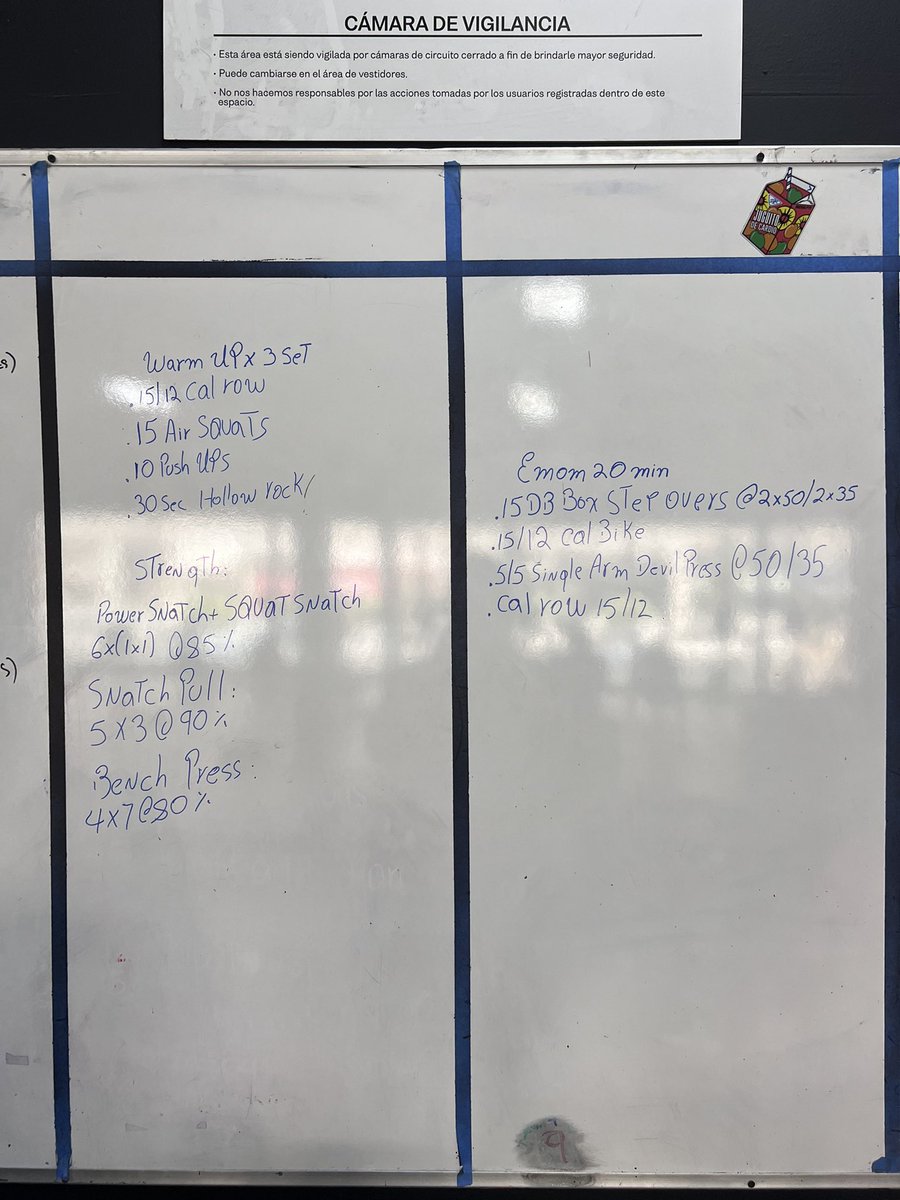 CÁMARA DE VIGILANCIA
· Esta área está siendo vigilada por cámaras de circuito cerrado a fin de brindarle mayor seguridad.
· Puede cambiarse en el área de vestidores.
· No nos hacemos responsables por las acciones tomadas por los usuarios registradas dentro de este
espacio.
JUGUITO
DE CARDIO
Warm UP x 3 SeT
.15/12 Cal row
.15 Air SQUaTS
.10 Push UPs
.30 Sec Hollow rock/
STrength:
Power SNaTch + SQUaT SNaTch
6x(1x1) @85%
SNaTch Pull:
5 X 3 @ 90%
Bench Press:
4x7@80%
Emom 20 min
.15 DB Box STep overs @2x50/2x35
.15/12 cal Bike
.5/5 Single Arm Devil Press @50/35
.Cal row 15/12